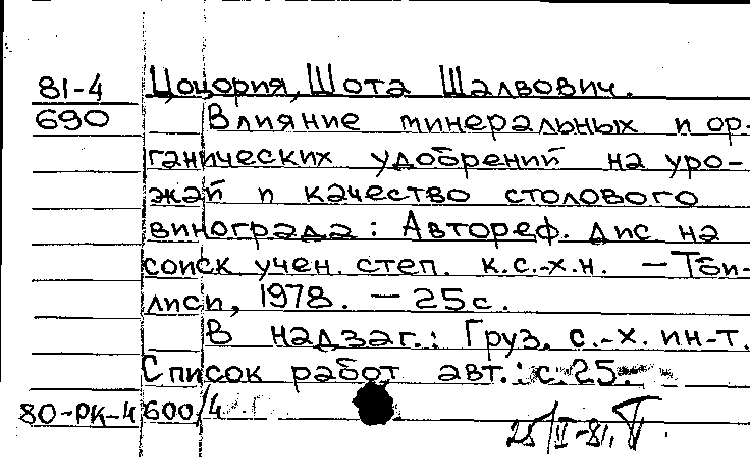 81-4 Цоцория, Шота Шалвович.
690 Влияние минеральных и ор-
ганических удобрений на уро-
жай и качество столового
винограда: Автореф. дис. на
соиск. учен. степ. к.с.-х.н. — Тби-
лиси, 1978. — 25 с.
В надзаг.: Груз. с.-х. ин-т.
Список работ авт.: с. 25.
80-РК-4600/4